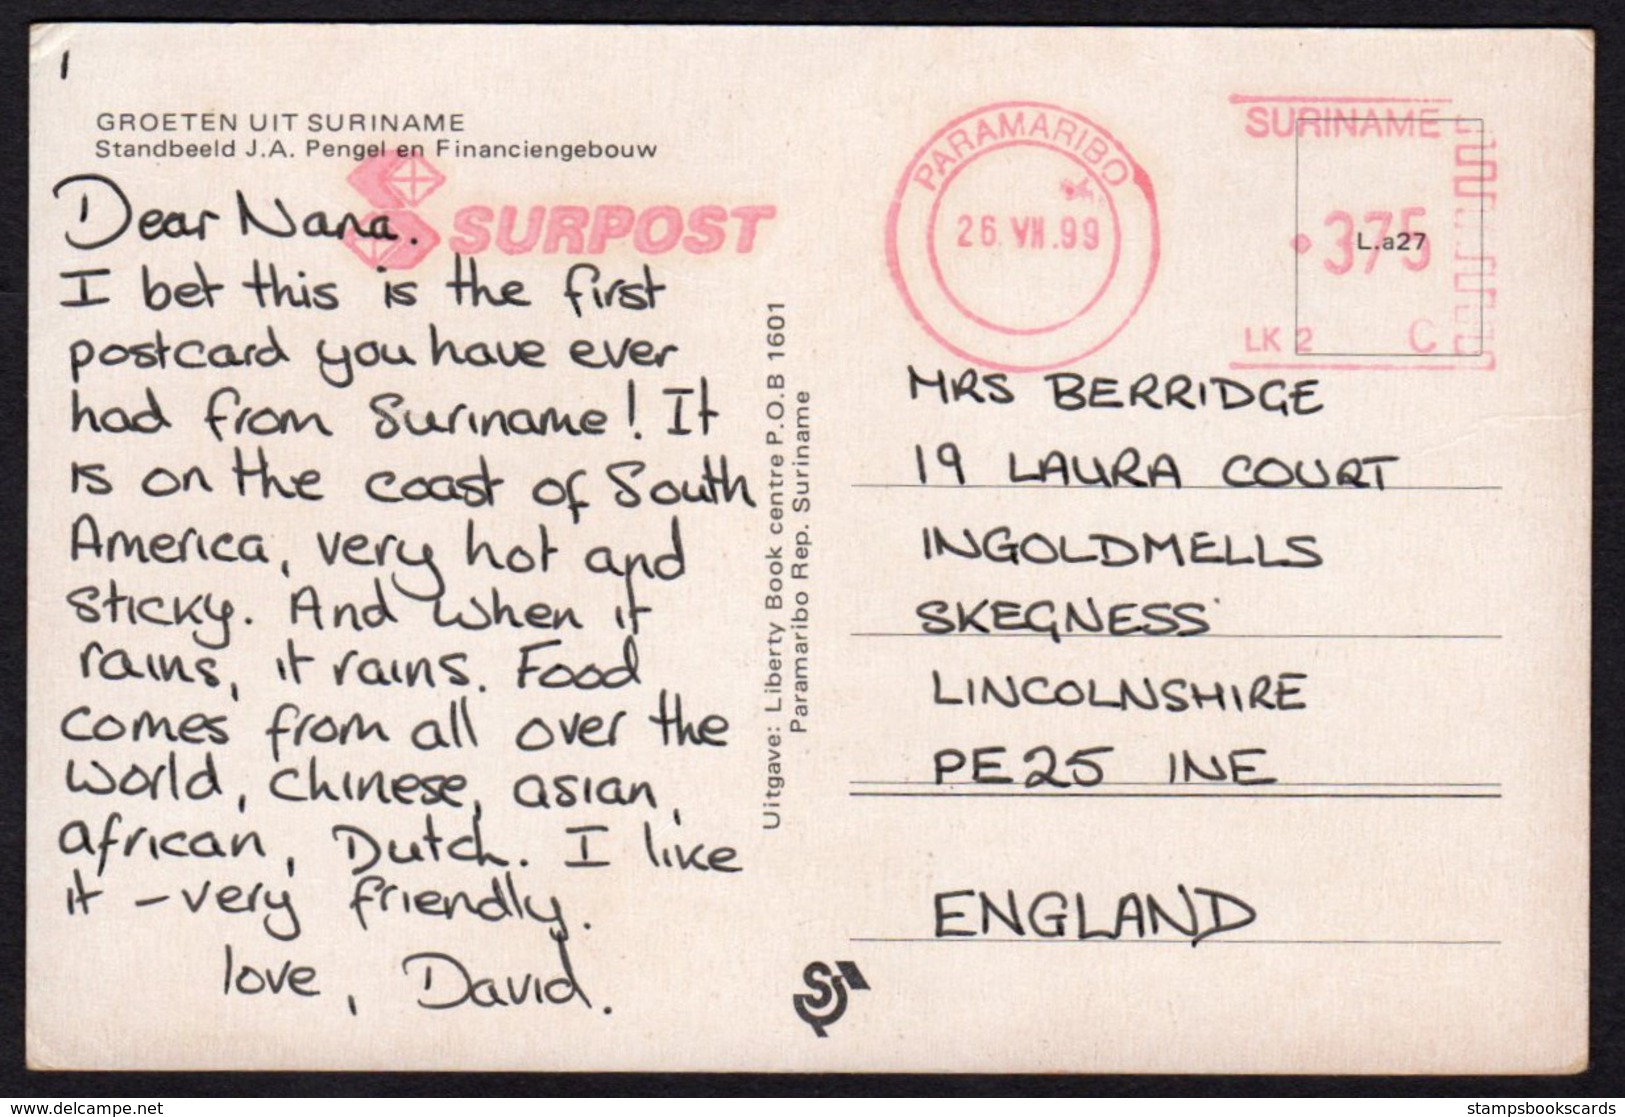 GROETEN UIT SURINAME
Standbeeld J.A. Pengel en Financiengebouw
SURPOST
Dear Nana.
I bet this is the first
postcard you have ever
had from Suriname! It
is on the coast of South
America, very hot and
sticky. And when it
rains, it rains. Food
comes from all over the
world, chinese, asian,
african, Dutch. I like
it – very friendly.
love, David.
Uitgave: Liberty Book centre P.O.B 1601
Paramaribo Rep. Suriname
PARAMARIBO
26 VII.99
SURINAME
375
L.a27
LK 2 C
MRS BERRIDGE
19 LAURA COURT
INGOLDMELLS
SKEGNESS
LINCOLNSHIRE
PE25 1NE
ENGLAND
www.delcampe.net
stampsbookscards